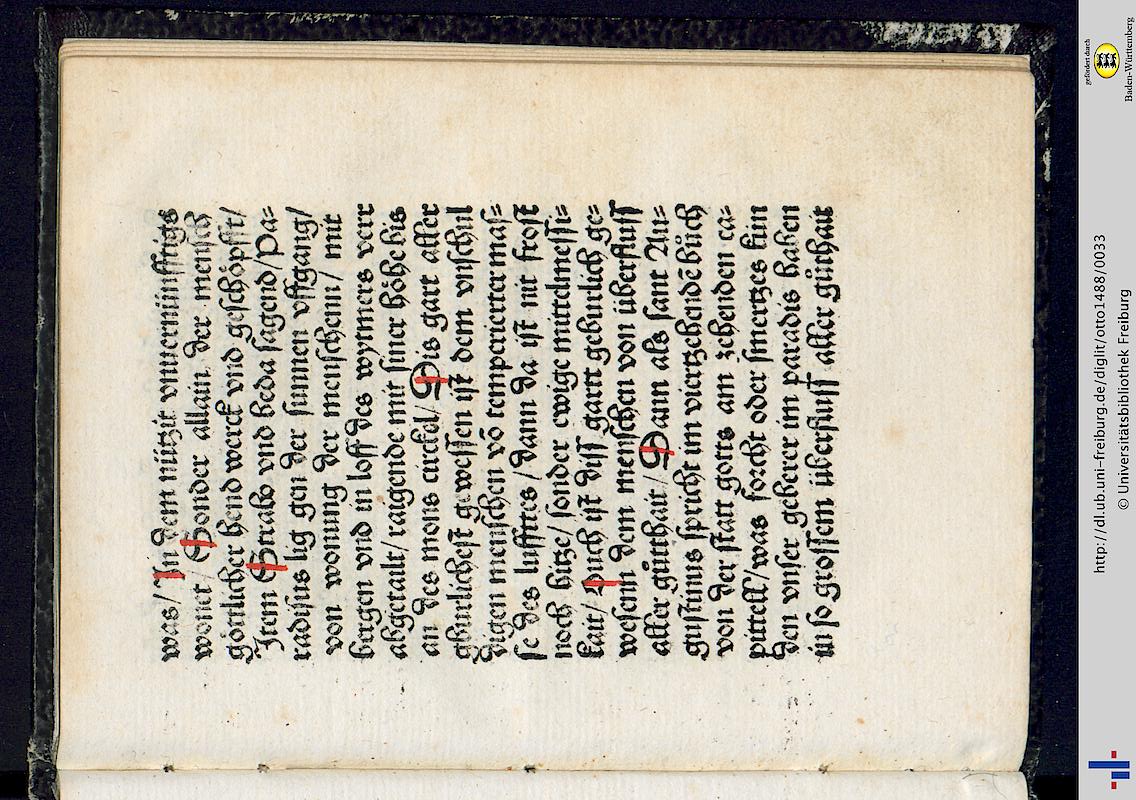 was/ In dem nützit vnuernünfftigs
wonet/ Sonder allain der mensch
götlicher hend werck vnd geschöpfft/
Item Strabo vnd beda sagend/ Pa⸗
radisus lig gen der sunnen vffgang/
von wonung der menschenn/ mit
birgen vnd in loff des wytmers verr
abgetailt/ raigende mit siner höhe bis
an des mons circkel/ Dis gart aller
gburlichest gewessen ist dem vnschul
digen menschen vō temperierter mas⸗
se des lufftes/ dann da ist nit frost
noch hitze/ sonder ewige mittelmessi⸗
kait/ Ouch ist diss gartt geburlich ge⸗
wesenn dem menschen von überfluss
aller gütthait/ Dann als sant Au⸗
gustinus spricht im viertzehendē büch
von der statt gotts am zehenden ca⸗
pittell/ was forcht oder smertzes kün
den vnser geberer im paradis haben
in so grossem überfluss aller güthait
http://dl.ub.uni-freiburg.de/diglit/otto1488/0033
© Universitätsbibliothek Freiburg
gefördert durch
Baden-Württemberg